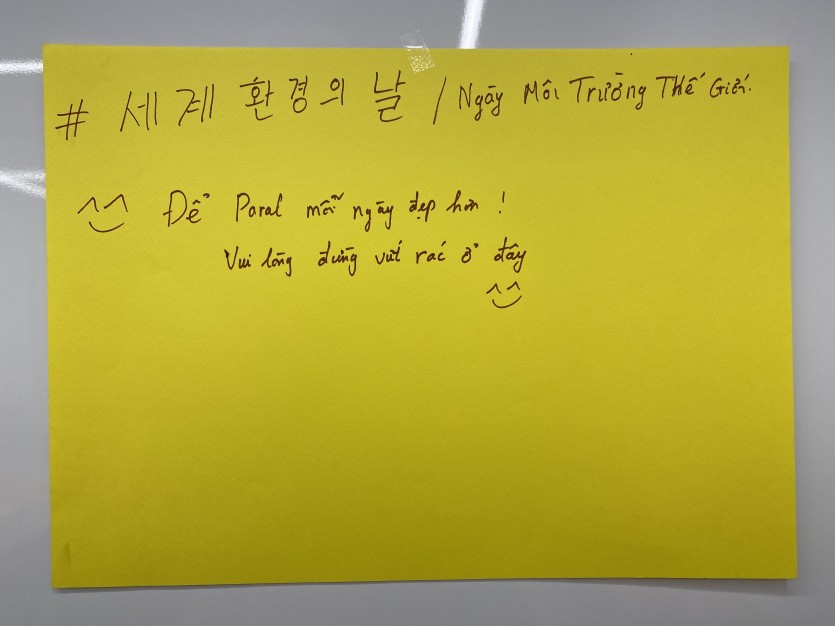 # 세계 환경의 날 / Ngày Môi Trường Thế Giới.
^^ Để Paral mỗi ngày đẹp hơn !
Vui lòng đừng vứt rác ở đây
^^